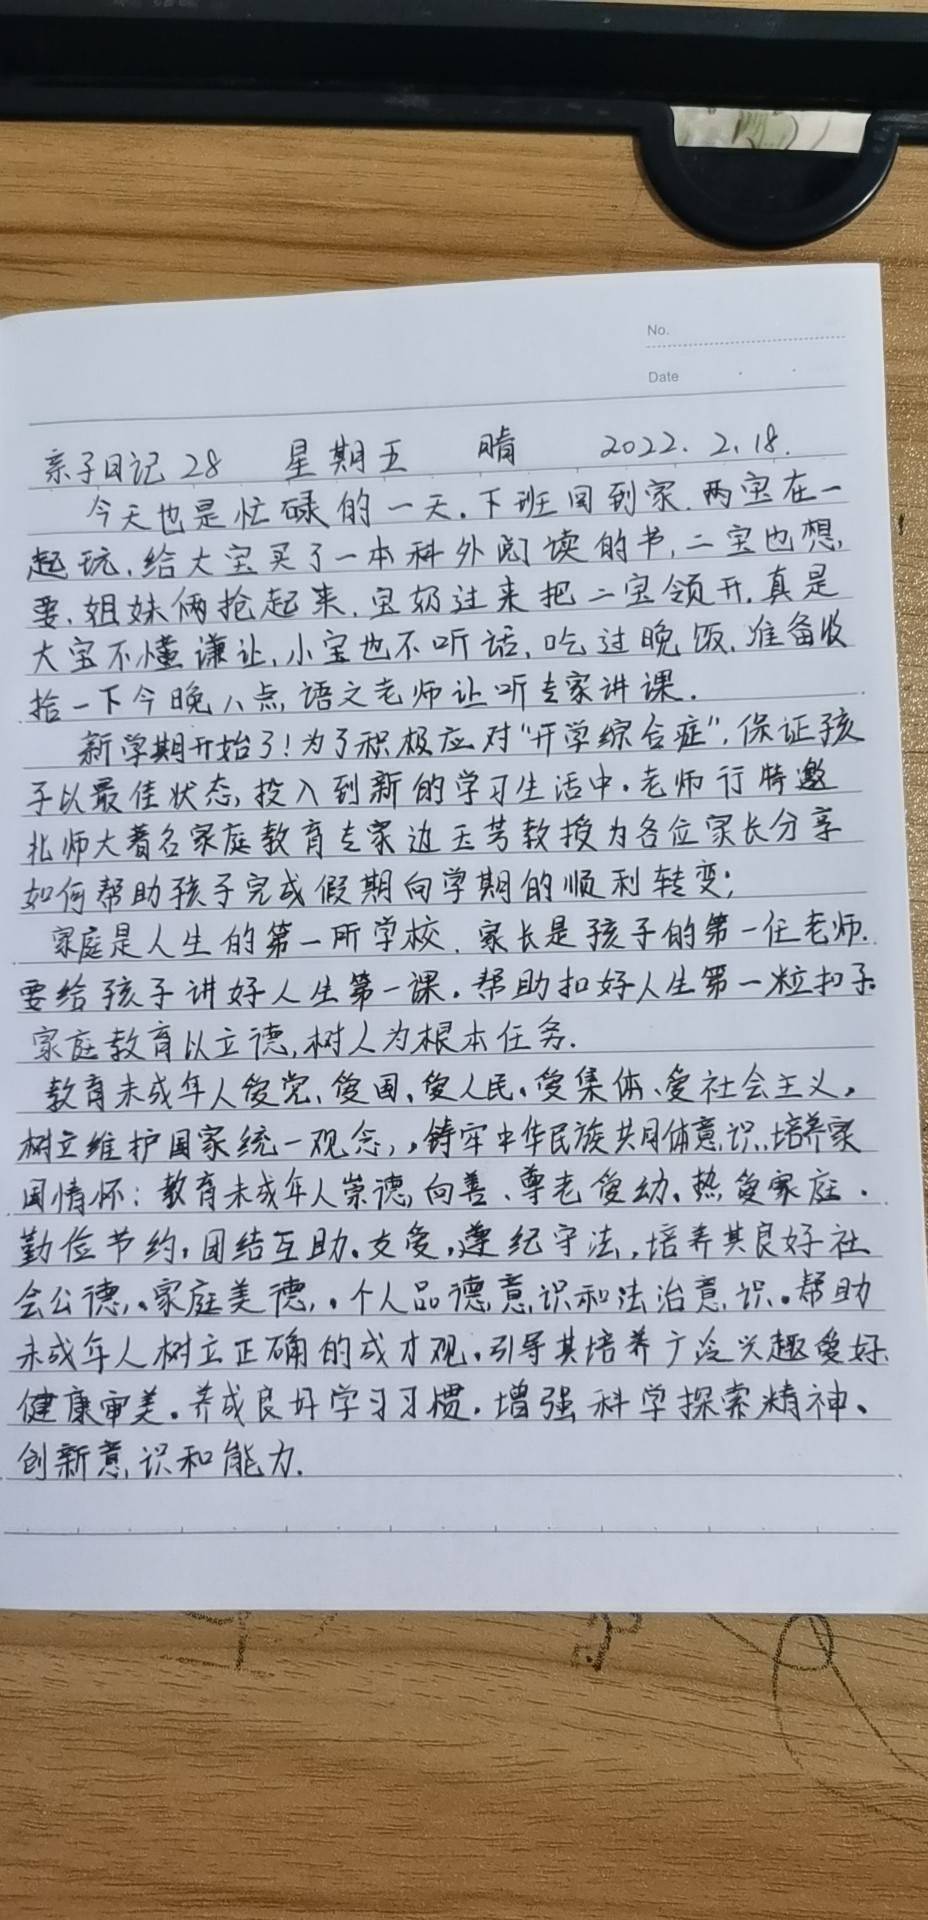 No.
Date
亲子日记 28 星期五 晴 2022.2.18.
今天也是忙碌的一天.下班回到家.两宝在一
起玩,给大宝买了一本科外阅读的书,二宝也想,
要,姐妹俩抢起来,宝奶过来把二宝领开,真是
大宝不懂谦让,小宝也不听话,吃过晚饭,准备收
拾一下今晚八点,语文老师让听专家讲课.
新学期开始了!为了积极应对“开学综合症”,保证孩
子以最佳状态,投入到新的学习生活中.老师行特邀
北师大著名家庭教育专家边玉芳教授为各位家长分享
如何帮助孩子完成假期向学期的顺利转变;
家庭是人生的第一所学校,家长是孩子的第一任老师.
要给孩子讲好人生第一课.帮助扣好人生第一粒扣子.
家庭教育以立德,树人为根本任务.
教育未成年人爱党、爱国、爱人民、爱集体、爱社会主义,
树立维护国家统一观念,,铸牢中华民族共同体意识,培养家
国情怀:教育未成年人崇德,向善、尊老爱幼、热爱家庭.
勤俭节约,团结互助.友爱,遵纪守法,培养其良好社
会公德,、家庭美德,.个人品德,意识和法治意识.帮助
未成年人树立正确的成才观.引导其培养广泛兴趣爱好、
健康审美.养成良好学习习惯.增强科学探索精神、
创新意识和能力.